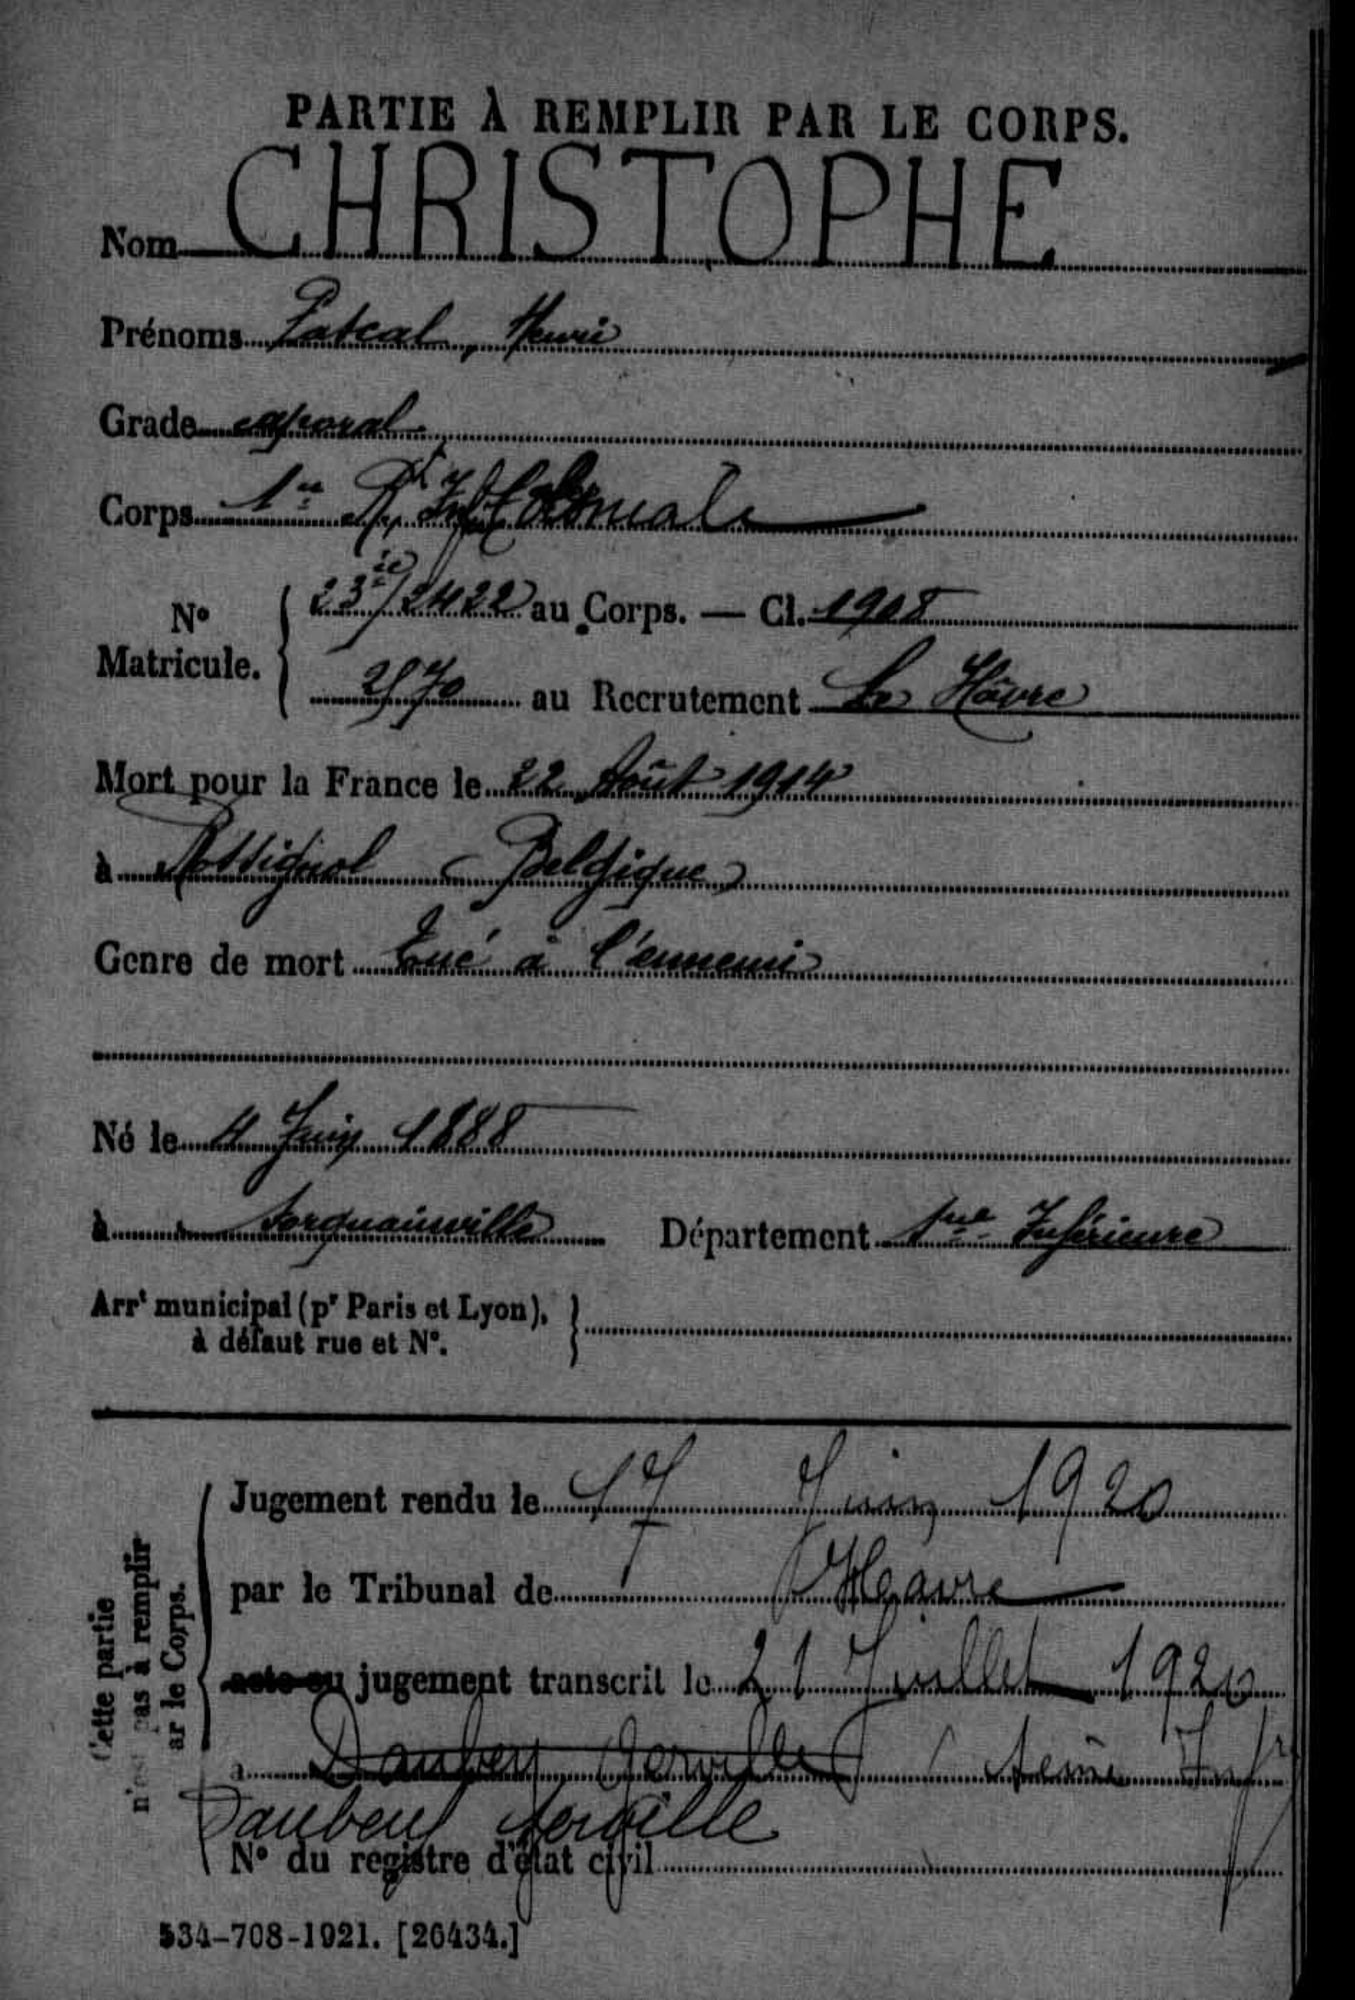 PARTIE À REMPLIR PAR LE CORPS.
Nom CHRISTOPHE
Prénoms Pascal, Henri
Grade caporal
Corps 1er Rt Inf Coloniale
No Matricule. 23ie/2422 au Corps. — Cl. 1908
2570 au Recrutement Le Hâvre
Mort pour la France le 22 Août 1914
à Rossignol Belgique
Genre de mort Tué à l'ennemi
Né le 4 Juin 1888
à Sorquainville Département Sne Inférieure
Arrt municipal (pr Paris et Lyon), à défaut rue et No.
Cette partie n'est pas à remplir par le Corps.
Jugement rendu le 17 Juin 1920
par le Tribunal de Hâvre
acte ou jugement transcrit le 21 Juillet 1920
à Daubeuf Serville Seine Infre
Daubeuf Serville
No du registre d'état civil
534-708-1921. [26434.]